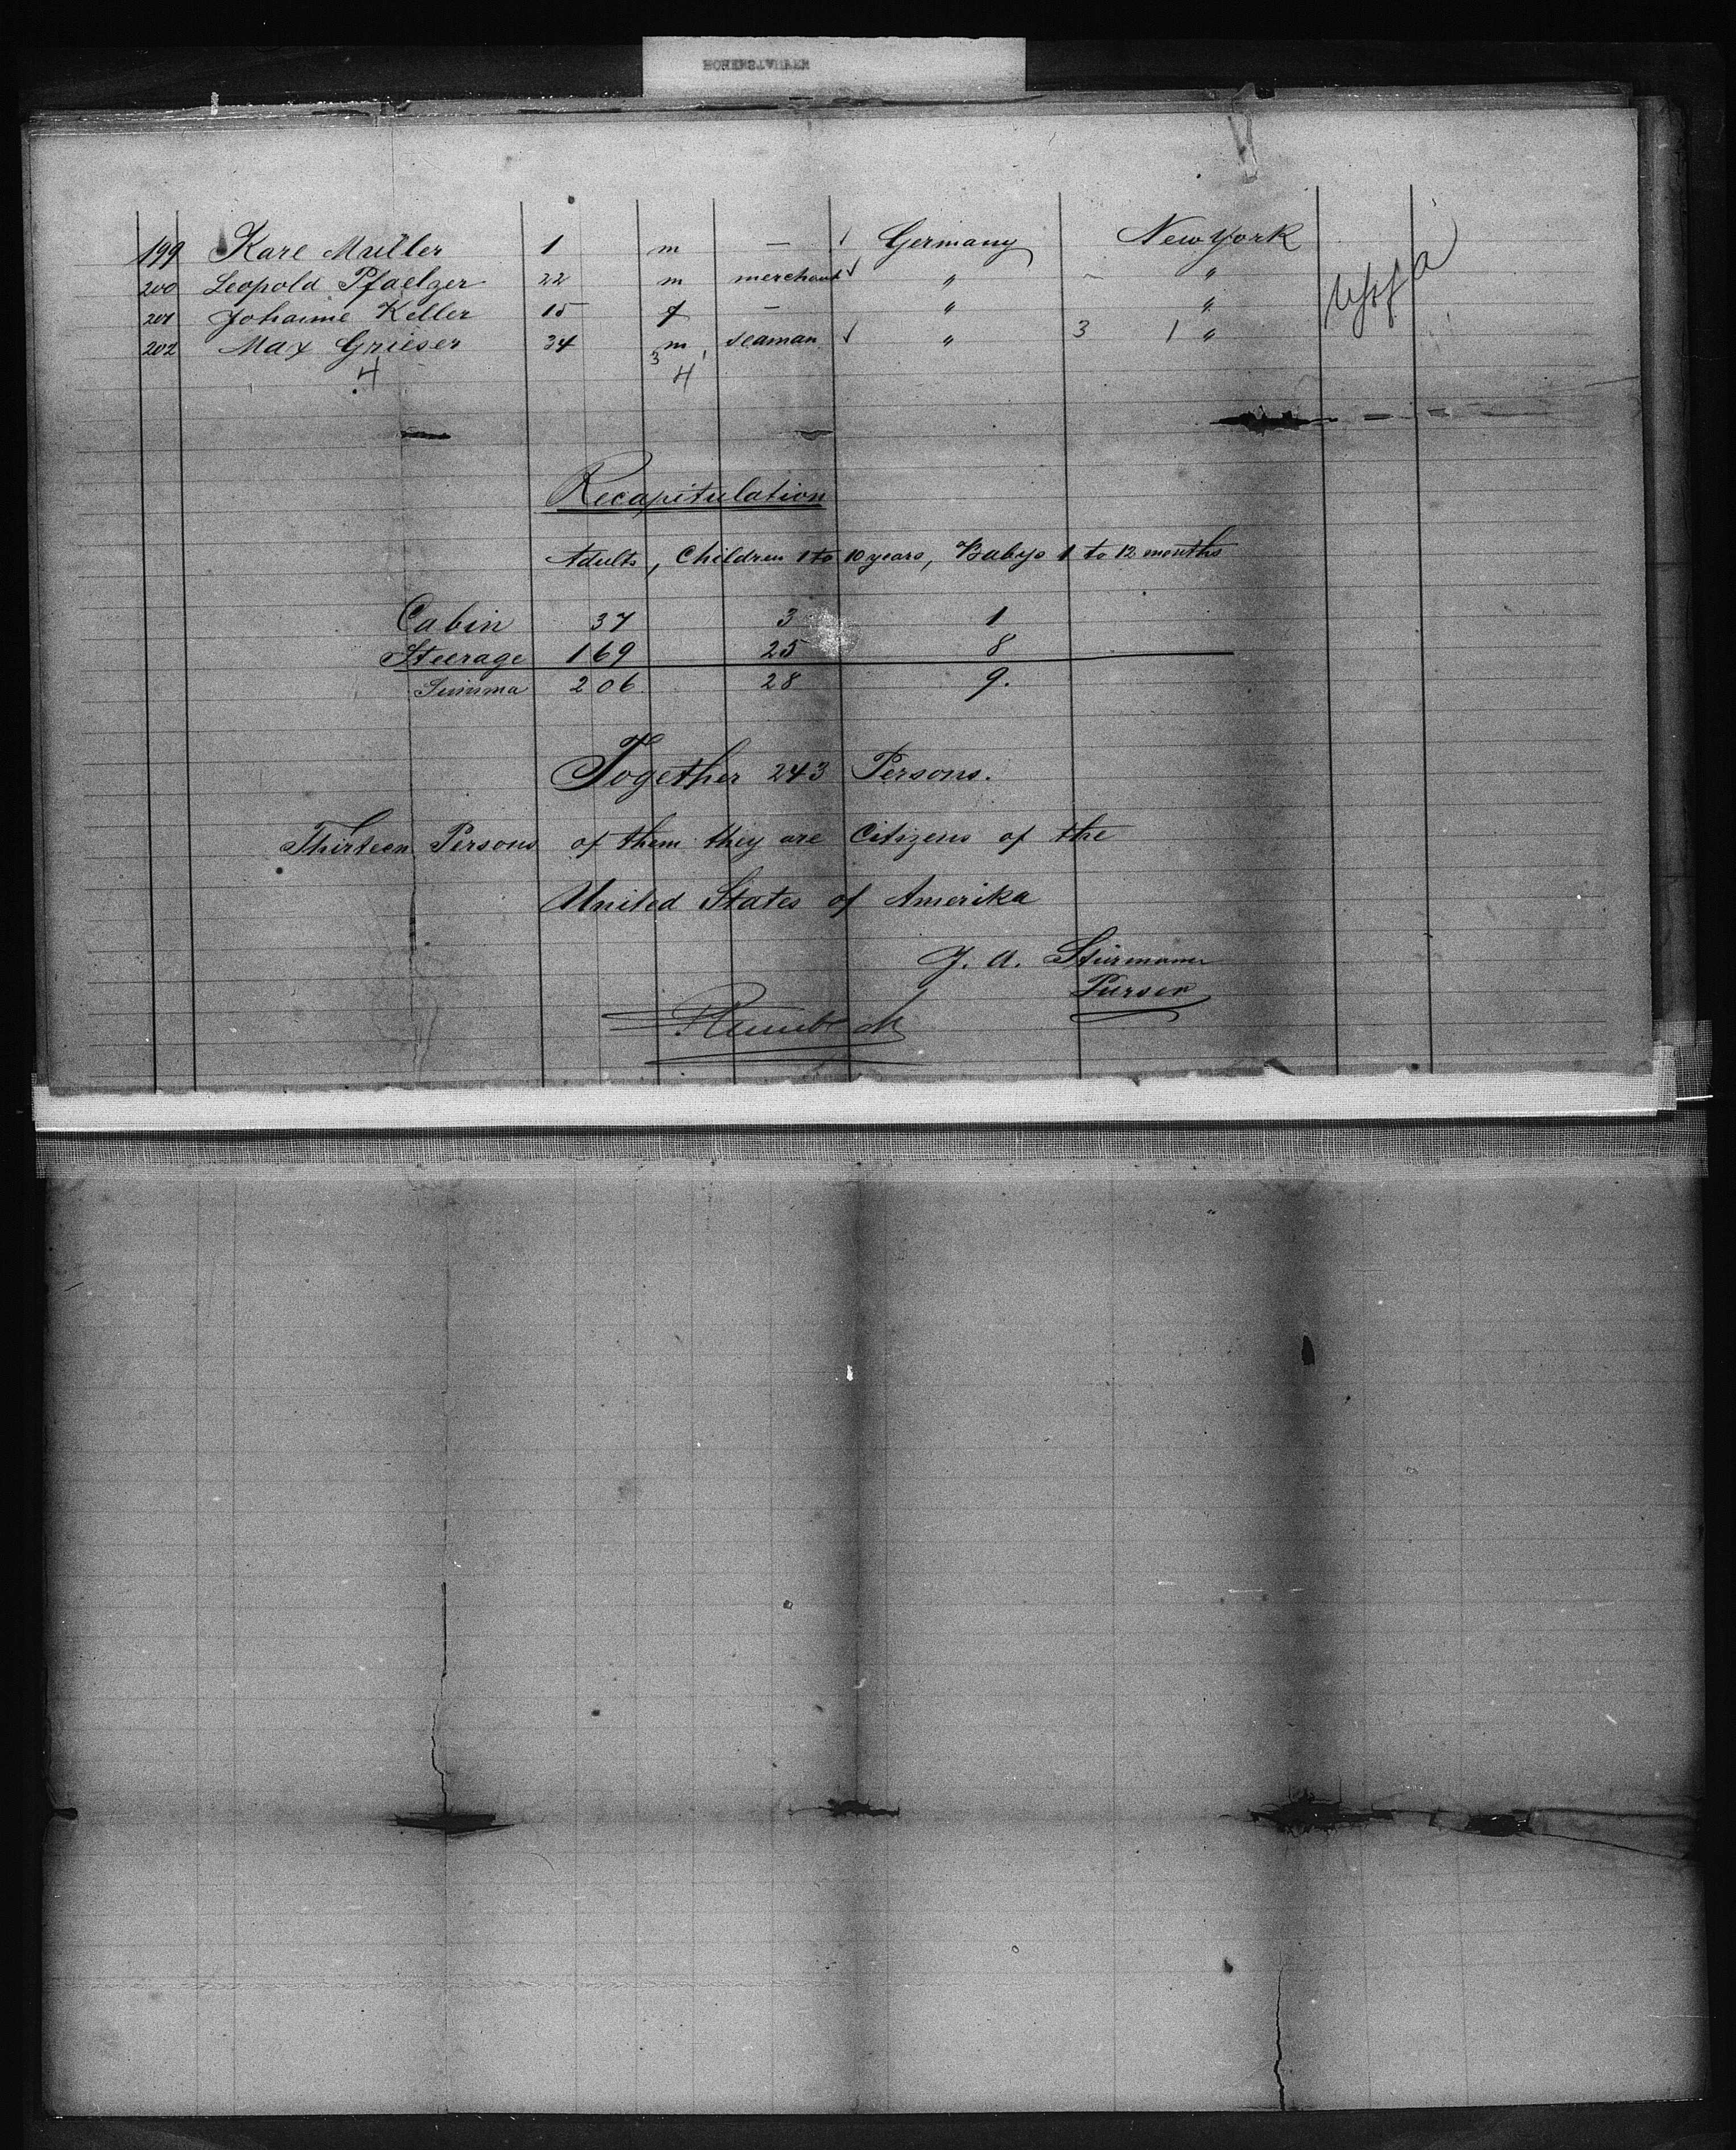 HOHENSTAUFEN
199 Karl Müller 1 m — ✓ Germany New York
200 Leopold Pfaelzer 22 m merchant ✓ " "
201 Johanne Keller 15 f — " "
202 Max Grieser 34 m seaman ✓ " 3 1 "
4 3 1 4
Recapitulation
Adults, Children 1 to 10 years, Babys 1 to 12 months
Cabin 37 3 1
Steerage 169 25 8
Summa 206. 28 9.
Together 243 Persons.
Thirteen Persons of them they are Citizens of the
United States of Amerika
J. A. Stürmann
Purser